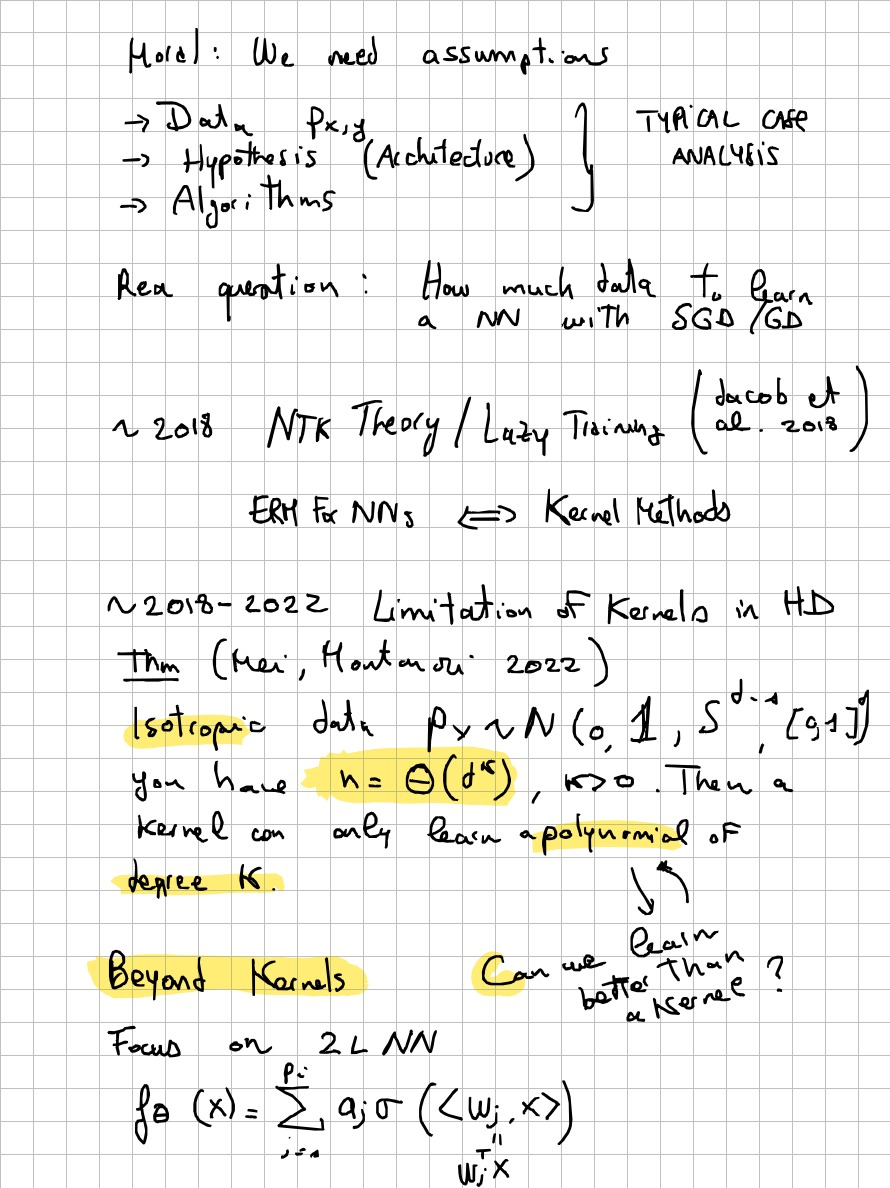 Moral: We need assumptions
→ Data Px,y
→ Hypothesis (Architecture)
→ Algorithms
TYPICAL CASE
ANALYSIS
Rea question: How much data to learn
a NN with SGD/GD
~ 2018 NTK Theory / Lazy Training (Jacob et
al. 2018)
ERM For NNs ⟺ Kernel Methods
~2018-2022 Limitation of Kernels in HD
Thm (Mei, Montanari 2022)
Isotropic data Px ~ N(0, 1, S^{d-1}, [0,1]^d
you have n = Θ(d^κ), κ>0. Then a
kernel can only learn a polynomial of
degree κ.
Beyond Kernels
Can we learn
better than
a kernel ?
Focus on 2L NN
fθ (x) = Σ_{j=1}^{p} aj σ (<wj, x>)
=
wj^T x